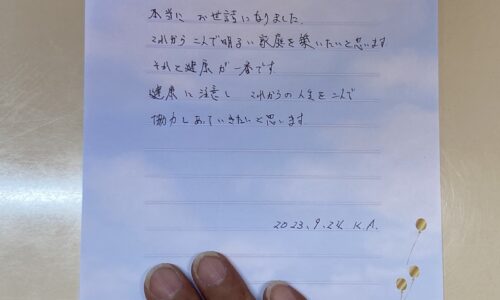 本当に お世話になりました.
これから 二人で明るい家庭を築いたいと思います
それと健康が一番です.
健康に注意し これからの人生を二人で
協力しあっていきたいと思います
2023.9.24 K.A.